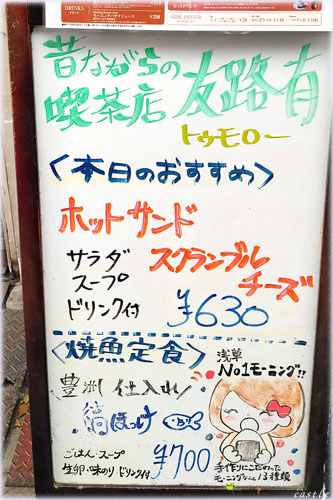 DRINKS
SIDE ORDER
昔ながらの
喫茶店 友路有
トゥモロー
<本日のおすすめ>
ホットサンド
サラダ スクランブル
スープ チーズ
ドリンク付 ¥630
<焼魚定食>
浅草
No1モーニング!!
豊洲 仕入れ
縞ほっけ
ごはん・スープ
生卵・味のり ドリンク付 ¥700
手作りにこだわった
モーニングメニュー13種類